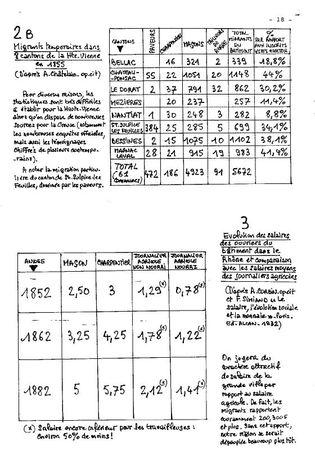 - 18 -
2B
Migrants temporaires dans
8 cantons de la Hte. Vienne
en 1855
(D'après A. Châtelain. op.cit)
Pour diverses raisons, les
statistiques sont très difficiles
à établir pour la Haute-Vienne
alors qu'on dispose de nombreuses
sources pour la Creuse (notamment
les nombreuses enquêtes officielles,
mais aussi les témoignages
chiffrés de plusieurs contempo-
rains).
A noter la migration particu-
lière du canton de St. Sulpice les
Feuilles, dominée par les paveurs.
CANTONS PAVEURS CHARPENTIERS MAÇONS TOTAL MIGRANTS DU BATIMENT %
BELLAC 16 321 2 339 18,8%
CHATEAU-PONSAC 55 22 1051 20 1148 44%
LE DORAT 2 37 791 32 862 30,2%
MEZIÈRES 20 237 257 11,4%
NANTIAT 1 30 248 3 282 8,8%
ST. SULPICE LES FEUILLES 384 25 285 5 699 34,1%
BESSINES 2 15 1075 10 1102 38,1%
MAGNAC LAVAL 28 21 915 19 983 41,9%
TOTAL 472 186 4923 91 5672
3
Evolution des salaires
des ouvriers du
bâtiment dans le
Rhône et comparaison
avec les salaires moyens
des journaliers agricoles
(D'après A. Corbin. op.cit
et F. Simiand "Le
salaire, l'évolution sociale
et la monnaie". Paris.
Ed. Alcan. 1932)
On jugera du
caractère attractif
du salaire de la
grande ville par
rapport au salaire
agricole. De fait, les
migrants rapportent
couramment 200, 300F
et plus. Sans cet apport,
notre région se serait
dépeuplée beaucoup plus tôt.
ANNÉE MAÇON CHARPENTIER JOURNALIER AGRICOLE NON NOURRI JOURNALIER AGRICOLE NOURRI
1852 2,50 3 1,29(x) 0,78(x)
1862 3,25 4,25 1,78(x) 1,22(x)
1882 5 5,75 2,12(x) 1,41(x)
(x) Salaire encore inférieur pour les travailleuses :
environ 50% de moins !